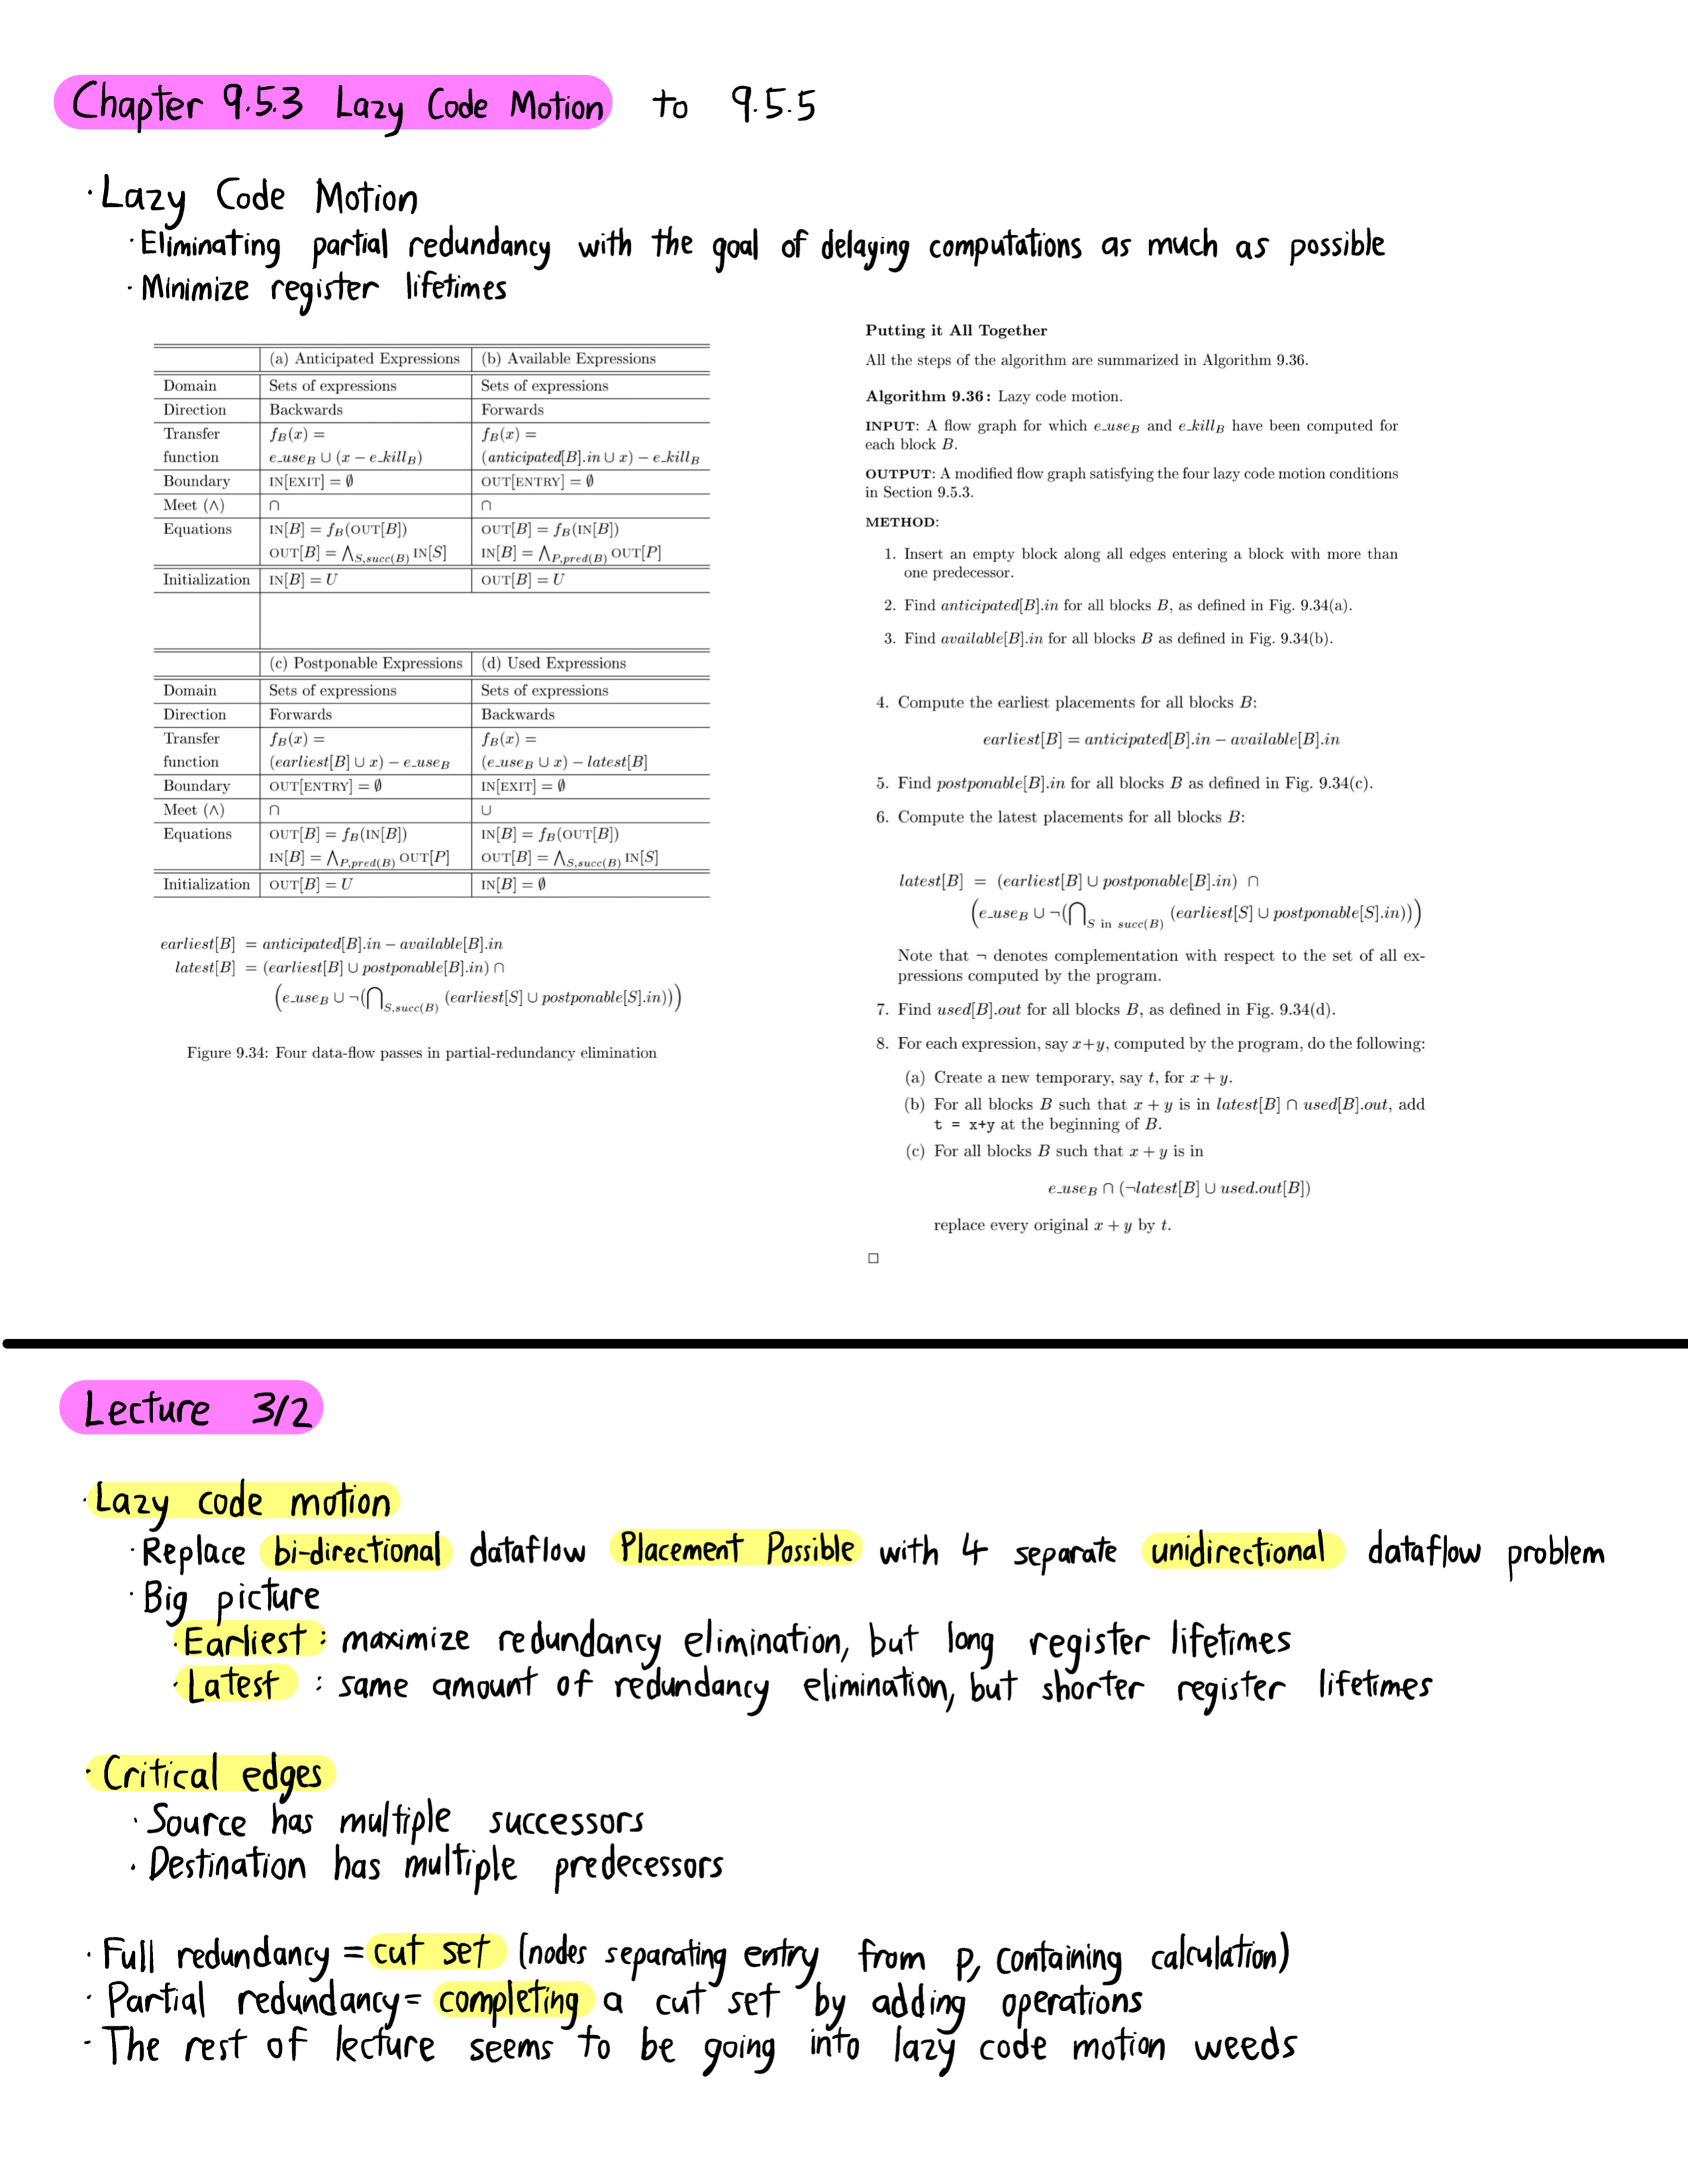 Chapter 9.5.3 Lazy Code Motion to 9.5.5
· Lazy Code Motion
· Eliminating partial redundancy with the goal of delaying computations as much as possible
· Minimize register lifetimes
(a) Anticipated Expressions (b) Available Expressions
Domain Sets of expressions Sets of expressions
Direction Backwards Forwards
Transfer f_B(x) = f_B(x) =
function e_use_B ∪ (x − e_kill_B) (anticipated[B].in ∪ x) − e_kill_B
Boundary IN[EXIT] = ∅ OUT[ENTRY] = ∅
Meet (∧) ∩ ∩
Equations IN[B] = f_B(OUT[B]) OUT[B] = f_B(IN[B])
OUT[B] = ⋀_{S,succ(B)} IN[S] IN[B] = ⋀_{P,pred(B)} OUT[P]
Initialization IN[B] = U OUT[B] = U
(c) Postponable Expressions (d) Used Expressions
Domain Sets of expressions Sets of expressions
Direction Forwards Backwards
Transfer f_B(x) = f_B(x) =
function (earliest[B] ∪ x) − e_use_B (e_use_B ∪ x) − latest[B]
Boundary OUT[ENTRY] = ∅ IN[EXIT] = ∅
Meet (∧) ∩ ∪
Equations OUT[B] = f_B(IN[B]) IN[B] = f_B(OUT[B])
IN[B] = ⋀_{P,pred(B)} OUT[P] OUT[B] = ⋀_{S,succ(B)} IN[S]
Initialization OUT[B] = U IN[B] = ∅
earliest[B] = anticipated[B].in − available[B].in
latest[B] = (earliest[B] ∪ postponable[B].in) ∩
(e_use_B ∪ ¬(⋂_{S,succ(B)} (earliest[S] ∪ postponable[S].in)))
Figure 9.34: Four data-flow passes in partial-redundancy elimination
Putting it All Together
All the steps of the algorithm are summarized in Algorithm 9.36.
Algorithm 9.36: Lazy code motion.
INPUT: A flow graph for which e_use_B and e_kill_B have been computed for
each block B.
OUTPUT: A modified flow graph satisfying the four lazy code motion conditions
in Section 9.5.3.
METHOD:
1. Insert an empty block along all edges entering a block with more than
one predecessor.
2. Find anticipated[B].in for all blocks B, as defined in Fig. 9.34(a).
3. Find available[B].in for all blocks B as defined in Fig. 9.34(b).
4. Compute the earliest placements for all blocks B:
earliest[B] = anticipated[B].in − available[B].in
5. Find postponable[B].in for all blocks B as defined in Fig. 9.34(c).
6. Compute the latest placements for all blocks B:
latest[B] = (earliest[B] ∪ postponable[B].in) ∩
(e_use_B ∪ ¬(⋂_{S in succ(B)} (earliest[S] ∪ postponable[S].in)))
Note that ¬ denotes complementation with respect to the set of all ex-
pressions computed by the program.
7. Find used[B].out for all blocks B, as defined in Fig. 9.34(d).
8. For each expression, say x+y, computed by the program, do the following:
(a) Create a new temporary, say t, for x + y.
(b) For all blocks B such that x + y is in latest[B] ∩ used[B].out, add
t = x+y at the beginning of B.
(c) For all blocks B such that x + y is in
e_use_B ∩ (¬latest[B] ∪ used.out[B])
replace every original x + y by t.
□
Lecture 3/2
· Lazy code motion
· Replace bi-directional dataflow Placement Possible with 4 separate unidirectional dataflow problem
· Big picture
· Earliest : maximize redundancy elimination, but long register lifetimes
· Latest : same amount of redundancy elimination, but shorter register lifetimes
· Critical edges
· Source has multiple successors
· Destination has multiple predecessors
· Full redundancy = cut set (nodes separating entry from p, containing calculation)
· Partial redundancy = completing a cut set by adding operations
· The rest of lecture seems to be going into lazy code motion weeds